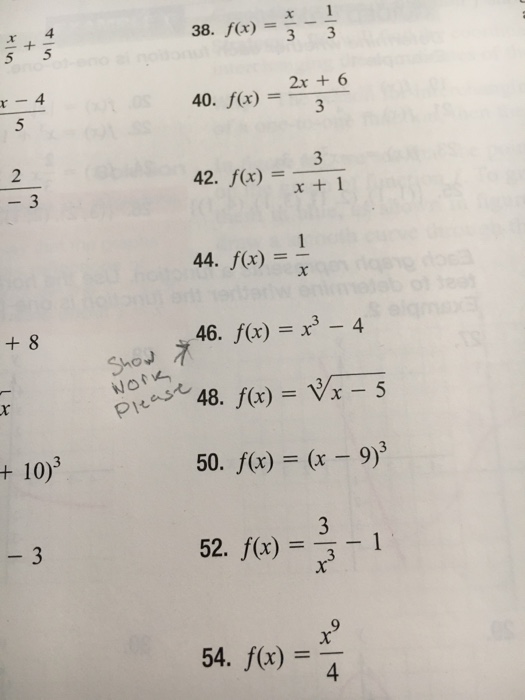 x/5 + 4/5
x - 4 / 5
2 / - 3
+ 8
x
+ 10)³
- 3
38. f(x) = x/3 - 1/3
40. f(x) = (2x + 6)/3
42. f(x) = 3/(x + 1)
44. f(x) = 1/x
46. f(x) = x³ - 4
Show
Work
Please
48. f(x) = ∛(x - 5)
50. f(x) = (x - 9)³
52. f(x) = 3/x³ - 1
54. f(x) = x⁹/4